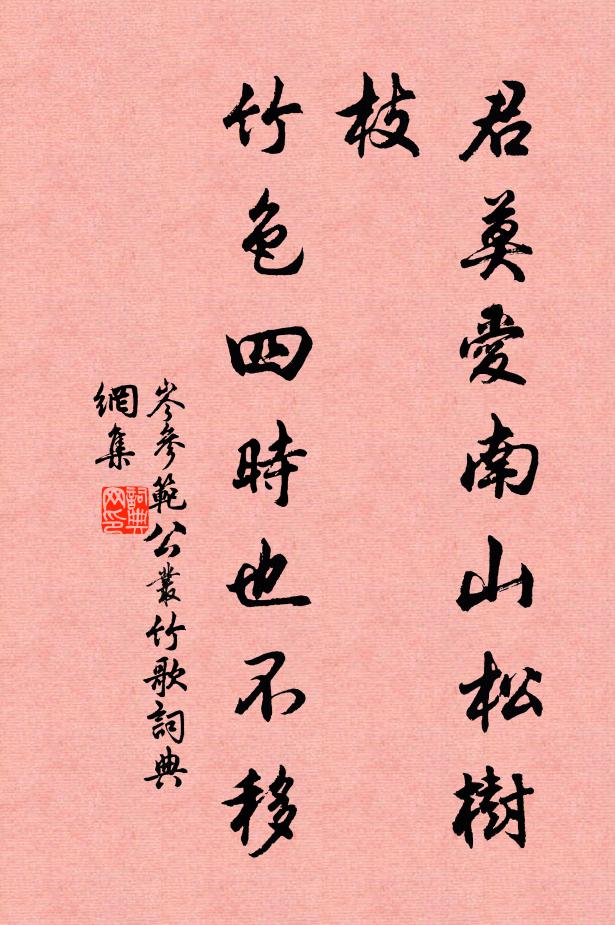 君莫愛南山松樹
枝
竹色四時也不移
岑參範公叢竹歌詞典
網集
詞典
网印